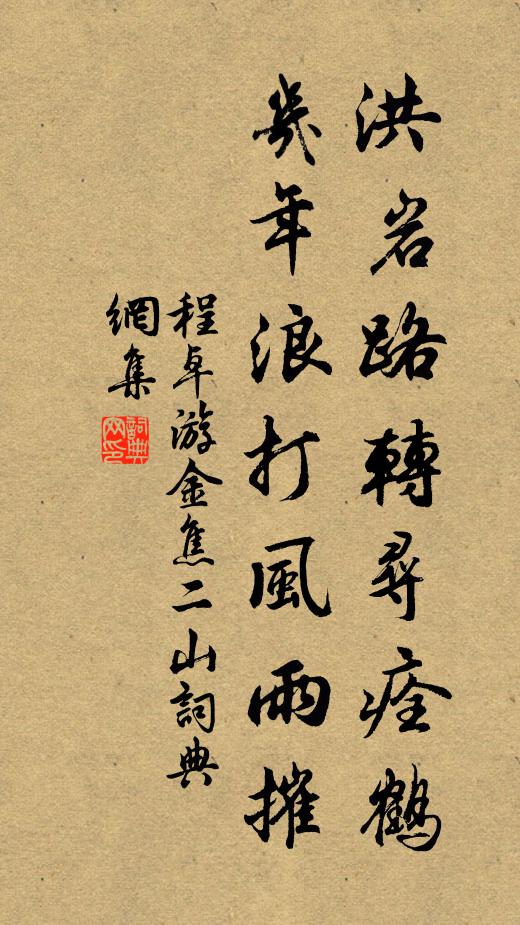 洪岩路轉尋瘞鶴
幾年浪打風雨摧
程卓游金焦二山詞典
網集
詞典
网印